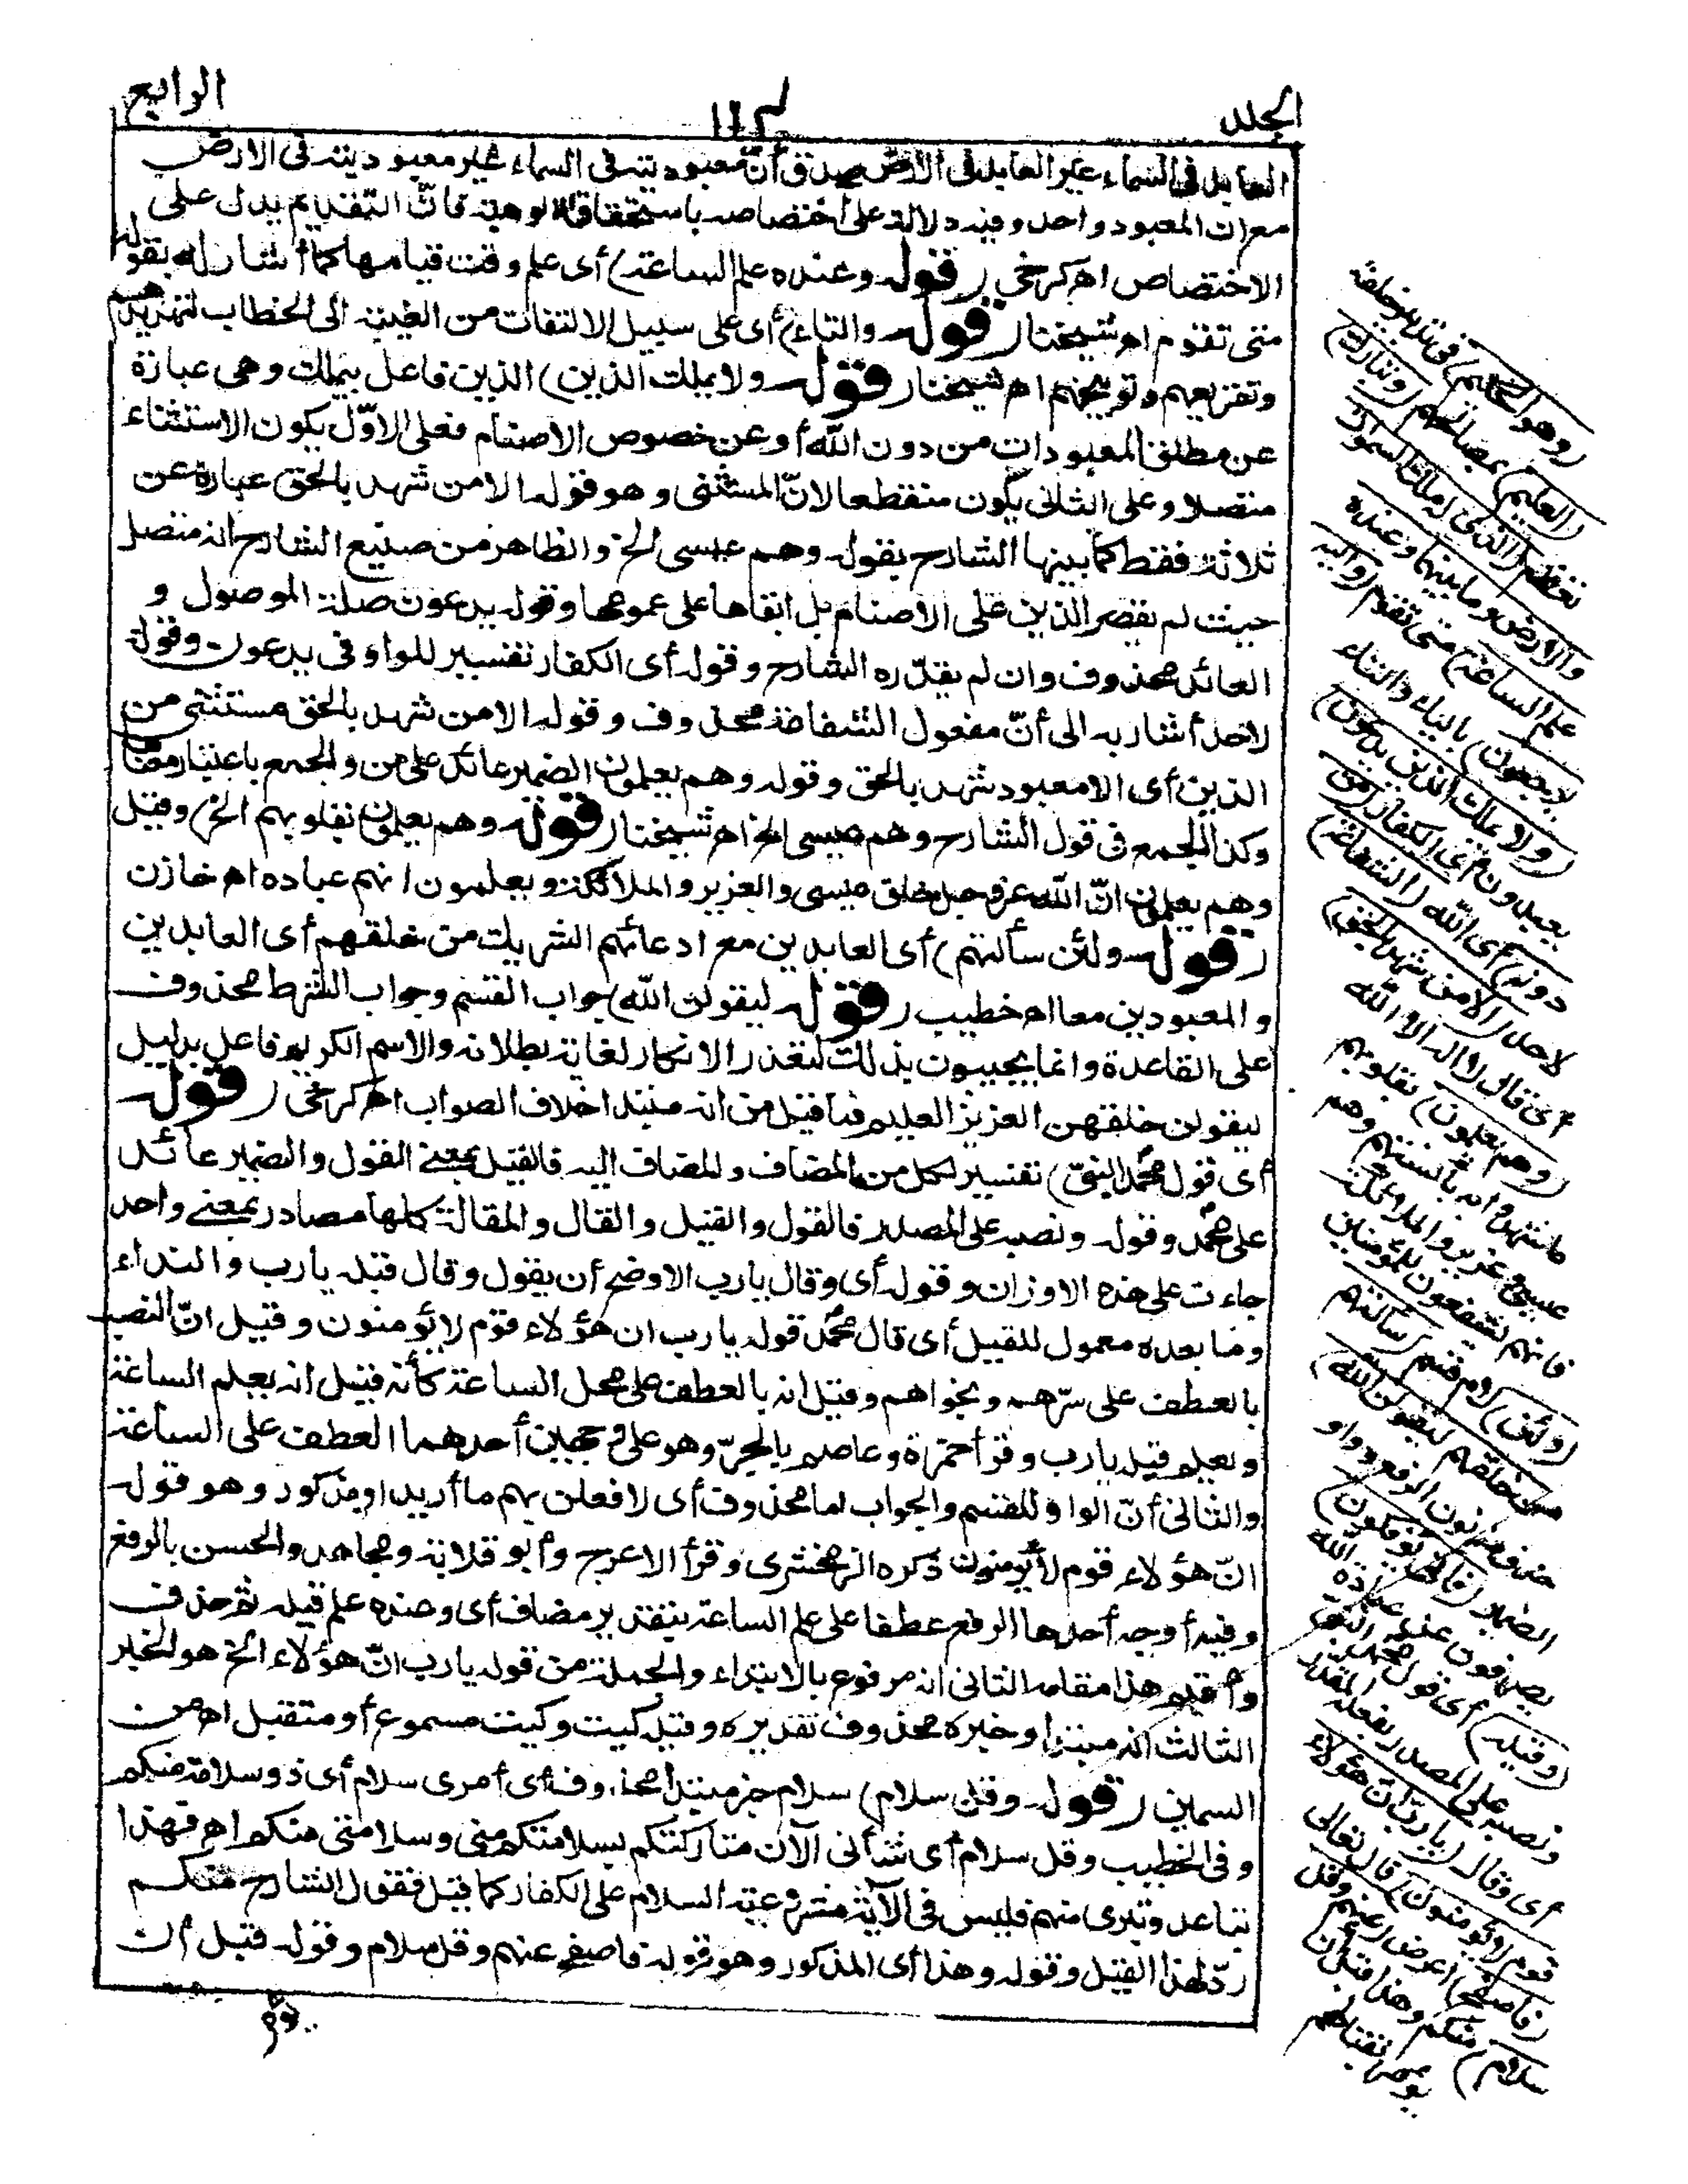 الجلد
١١٢
الرابع
العابد في السماء غير العابد في الأرض صدق أنّ معبوديته في السماء غير معبوديته في الارض
مع ان المعبود واحد وفيه دلالة على اختصاصه باستحقاق الالوهية فانّ التقديم يدل على
الاختصاص اه كرخي (قوله وعنده علم الساعة) أى علم وقت قيامها كما أشار له بقوله
متى تقوم اه شيخنا (قوله والتاء) أى على سبيل الالتفات من الغيبة الى الخطاب لتهديدهم
وتقريعهم وتوبيخهم اه شيخنا (قوله ولا يملك الذين) الذين فاعل يملك وهى عبارة
عن مطلق المعبودات من دون الله أو عن خصوص الاصنام فعلى الاوّل يكون الاستثناء
متصلا وعلى الثانى يكون منقطعا لانّ المستثنى وهو قوله الا من شهد بالحق عبارة عن
ثلاثة فقط كما بينها الشارح بقوله وهم عيسى الخ والظاهر من صنيع الشارح انه متصل
حيث لم يقصر الذين على الاصنام بل ابقاها على عمومها وقوله يدعون صلة الموصول و
العائد محذوف وان لم يقدّره الشارح وقوله أى الكفار تفسير للواو فى يدعون وقوله
لاحد أشار به الى أنّ مفعول الشفاعة محذوف وقوله الا من شهد بالحق مستثنى من
الذين أى الا معبود شهد بالحق وقوله وهم يعلمون الضمير عائد على من والجمع باعتبار معنا
وكذا الجمع فى قول الشارح وهم عيسى الخ اه شيخنا (قوله وهم يعلمون بقلوبهم الخ) وقيل
وهم يعلمون انّ الله عز وجل خلق عيسى والعزير والملائكة ويعلمون انهم عباده اه خازن
(قوله ولئن سألتهم) أى العابدين مع ادعائهم الشريك من خلقهم أى العابدين
والمعبودين معا اه خطيب (قوله ليقولن الله) جواب القسم وجواب الشرط محذوف
على القاعدة وانما يجيبون بذلك لتعذر الانكار لغاية بطلانه والاسم الكريم فاعل بدليل
ليقولن خلقهن العزيز العليم فما قيل من انه مبتدا خلاف الصواب اه كرخى (قوله
أى قول محمد النبىّ) تفسير لكل من المضاف والمضاف اليه فالقيل بمعنى القول والضمير عائد
على محمد وقوله ونصبه على المصدر فالقول والقيل والقال والمقالة كلها مصادر بمعنى واحد
جاءت على هذه الاوزان وقوله أى وقال يارب الاوضح أن يقول وقال قيله يارب والنداء
وما بعده معمول للقيل أى قال محمد قوله يارب ان هؤلاء قوم لا يؤمنون وقيل انّ النصب
بالعطف على سرّهم ونجواهم وقيل انه بالعطف على محل الساعة كأنه قيل انه يعلم الساعة
ويعلم قيله يارب وقرأ حمزة وعاصم بالجرّ وهو على وجهين أحدهما العطف على الساعة
والثانى أنّ الواو للقسم والجواب اما محذوف أى لافعلن بهم ما أريد او مذكور وهو قوله
انّ هؤلاء قوم لا يؤمنون ذكره الزمخشرى وقرأ الاعرج وأبو قلابة ومجاهد والحسن بالرفع
وفيه أوجه أحدها الرفع عطفا على علم الساعة بتقدير مضاف أى وعنده علم قيله ثم حذف
وأقيم هذا مقامه الثانى انه مرفوع بالابتداء والجملة من قوله يارب انّ هؤلاء الخ هو الخبر
الثالث انه مبتدا وخبره محذوف تقديره وقيله كيت وكيت مسموع أو متقبل اه من
السمين (قوله وقل سلام) سلام خبر مبتدا محذوف أى أمرى سلام أى ذو سلامة منكم
وفى الخطيب وقل سلام أى شأنى الآن متاركتكم بسلامتكم منى وسلامتى منكم اه فهذا
تباعد وتبرى منهم فليس فى الآية مشروعية السلام على الكفار كما قيل فقول الشارح منكم
ردّ لهذا القيل وقوله وهذا أى المذكور وهو قوله فاصفح عنهم وقل سلام وقوله قبل أن
(وهو الحكيم) فى تدبير خلقه
(العليم) بمصالحهم (وتبارك)
تعظم (الذى له ملك السموات
والارض وما بينهما وعنده
علم الساعة) متى تقوم (واليه
يرجعون) بالياء والتاء
(ولا يملك الذين يدعون)
يعبدون أى الكفار (من
دونه) أى الله (الشفاعة)
لاحد (الا من شهد بالحق)
أى قال لا اله الا الله
(وهم يعلمون) بقلوبهم
ما شهدوا به بألسنتهم وهم
عيسى وعزير والملائكة
فانهم يشفعون للمؤمنين
(ولئن) لام قسم (سألتهم
من خلقهم ليقولن الله)
حذف منه نون الرفع وواو
الضمير (فأنى يؤفكون)
يصرفون عن عبادة الله
(وقيله) أى قول محمد النبىّ
ونصبه على المصدر بفعله المقدر
أى وقال (يارب انّ هؤلاء
قوم لا يؤمنون) قال تعالى
(فاصفح) أعرض (عنهم وقل
سلام) منكم وهذا قبل أن
يؤمر بقتالهم